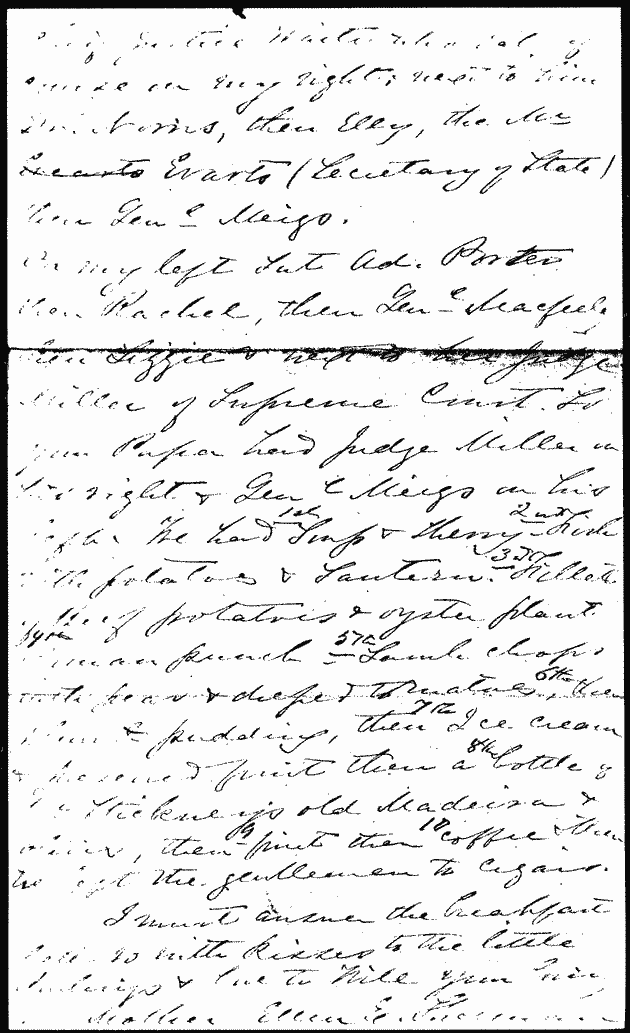 Justice Waite who sat of
course on my right, next to him
Mrs. Norris, then Elly, the Mr
Evarts (Secretary of State)
then Genl Meigs.
On my left sat Ad. Porter
then Rachel, then Genl Macfeely
then Lizzie & next to her Judge
Miller of Supreme Court. So
your Papa had Judge Miller on
his right & Genl Meigs on his
left. We had 1st Soup & Sherry 2nd Fish
with potatoes & Sauterne. 3rd Fillet
of Beef potatoes & oyster plant
4th Roman punch 5th Lamb chops
with peas & tomatoes, 6th then
plum pudding, then 7th Ice cream
& fruit then 8th a bottle of
Stickney's old Madeira &
olives, then 9 fruit then 10 coffee & then
we left the gentlemen to cigars.
I must answer the breakfast
bell so with kisses to the little
darlings & love to Will your loving
Mother Ellen E. Sherman